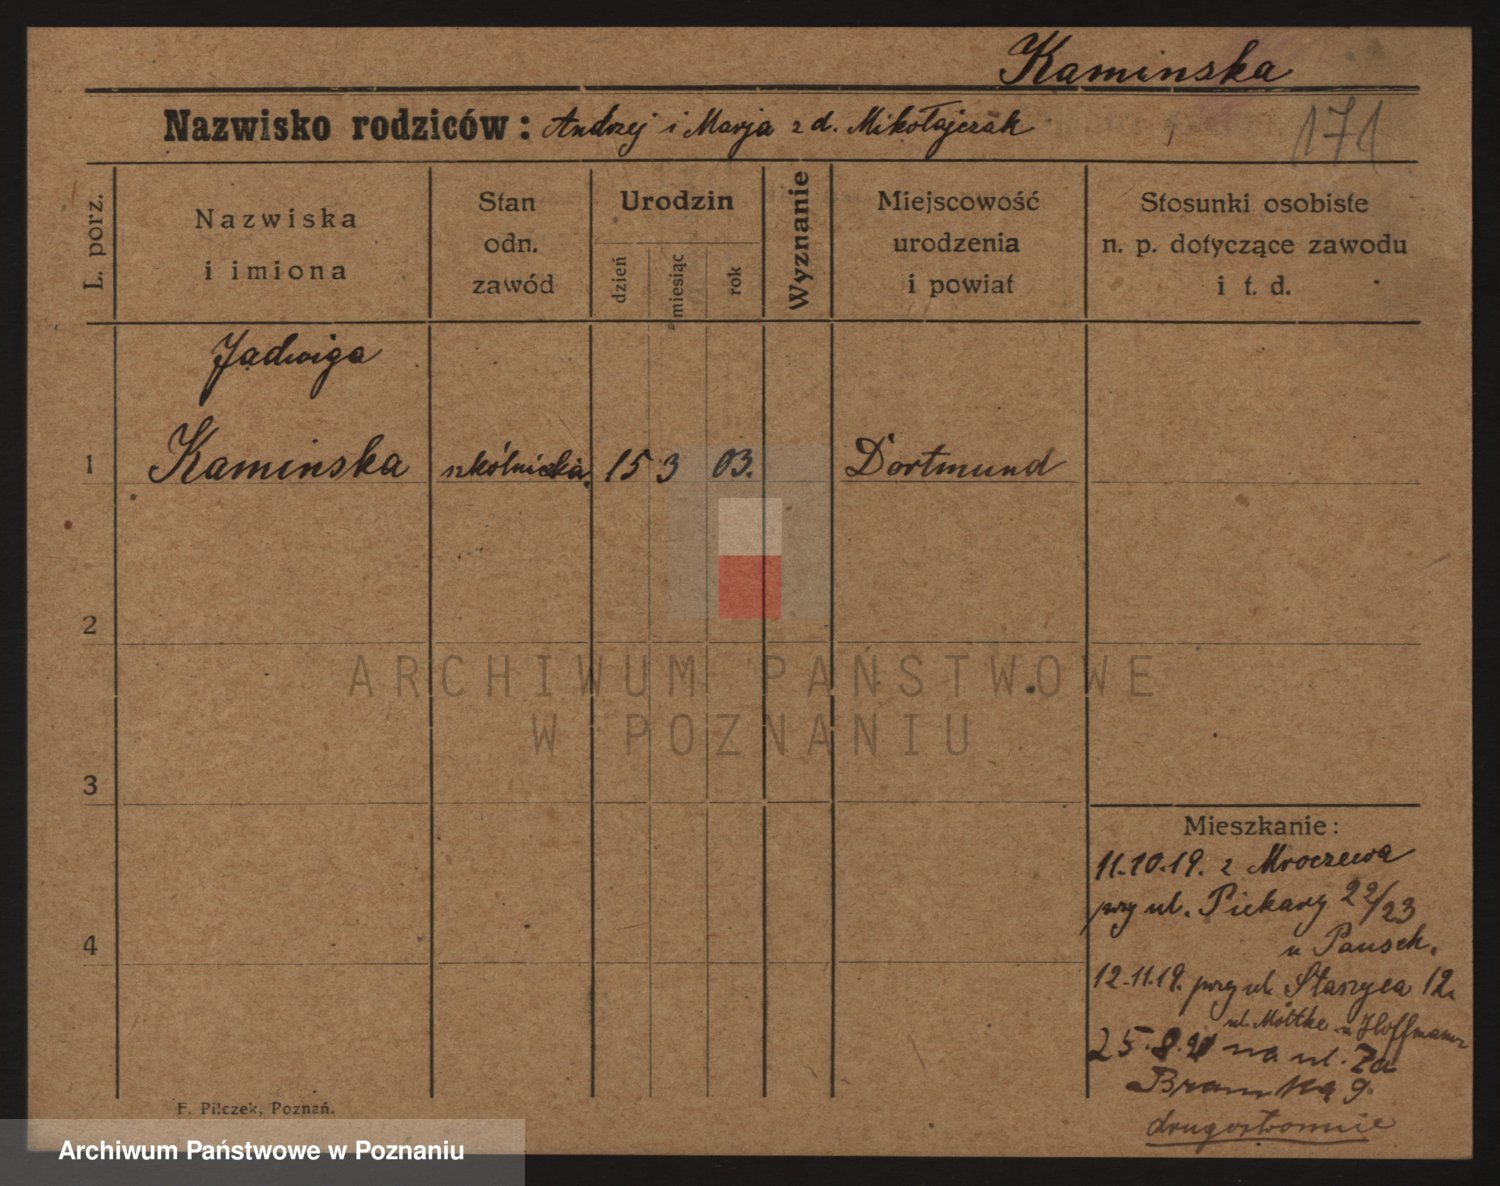 Kaminska
Nazwisko rodziców: Andrzej i Marja z d. Mikołajczak
171
L. porz.
Nazwiska
i imiona
Stan
odn.
zawód
Urodzin
dzień
miesiąc
rok
Wyznanie
Miejscowość
urodzenia
i powiat
Stosunki osobiste
n. p. dotyczące zawodu
i t. d.
Jadwiga
1 Kaminska szkólniczka 15 3 03. Dortmund
2
3
4
Mieszkanie:
11.10.19. z Mroczewa
przy ul. Piekary 22/23
u Pausch.
12.11.19. przy ul. Staszyca 12.
ul. Moltke u Hoffmann
25.8. na ul. Za
Bramką 9.
drugostronnie
F. Pilczek, Poznań.
ARCHIWUM PAŃSTWOWE
W POZNANIU
Archiwum Państwowe w Poznaniu